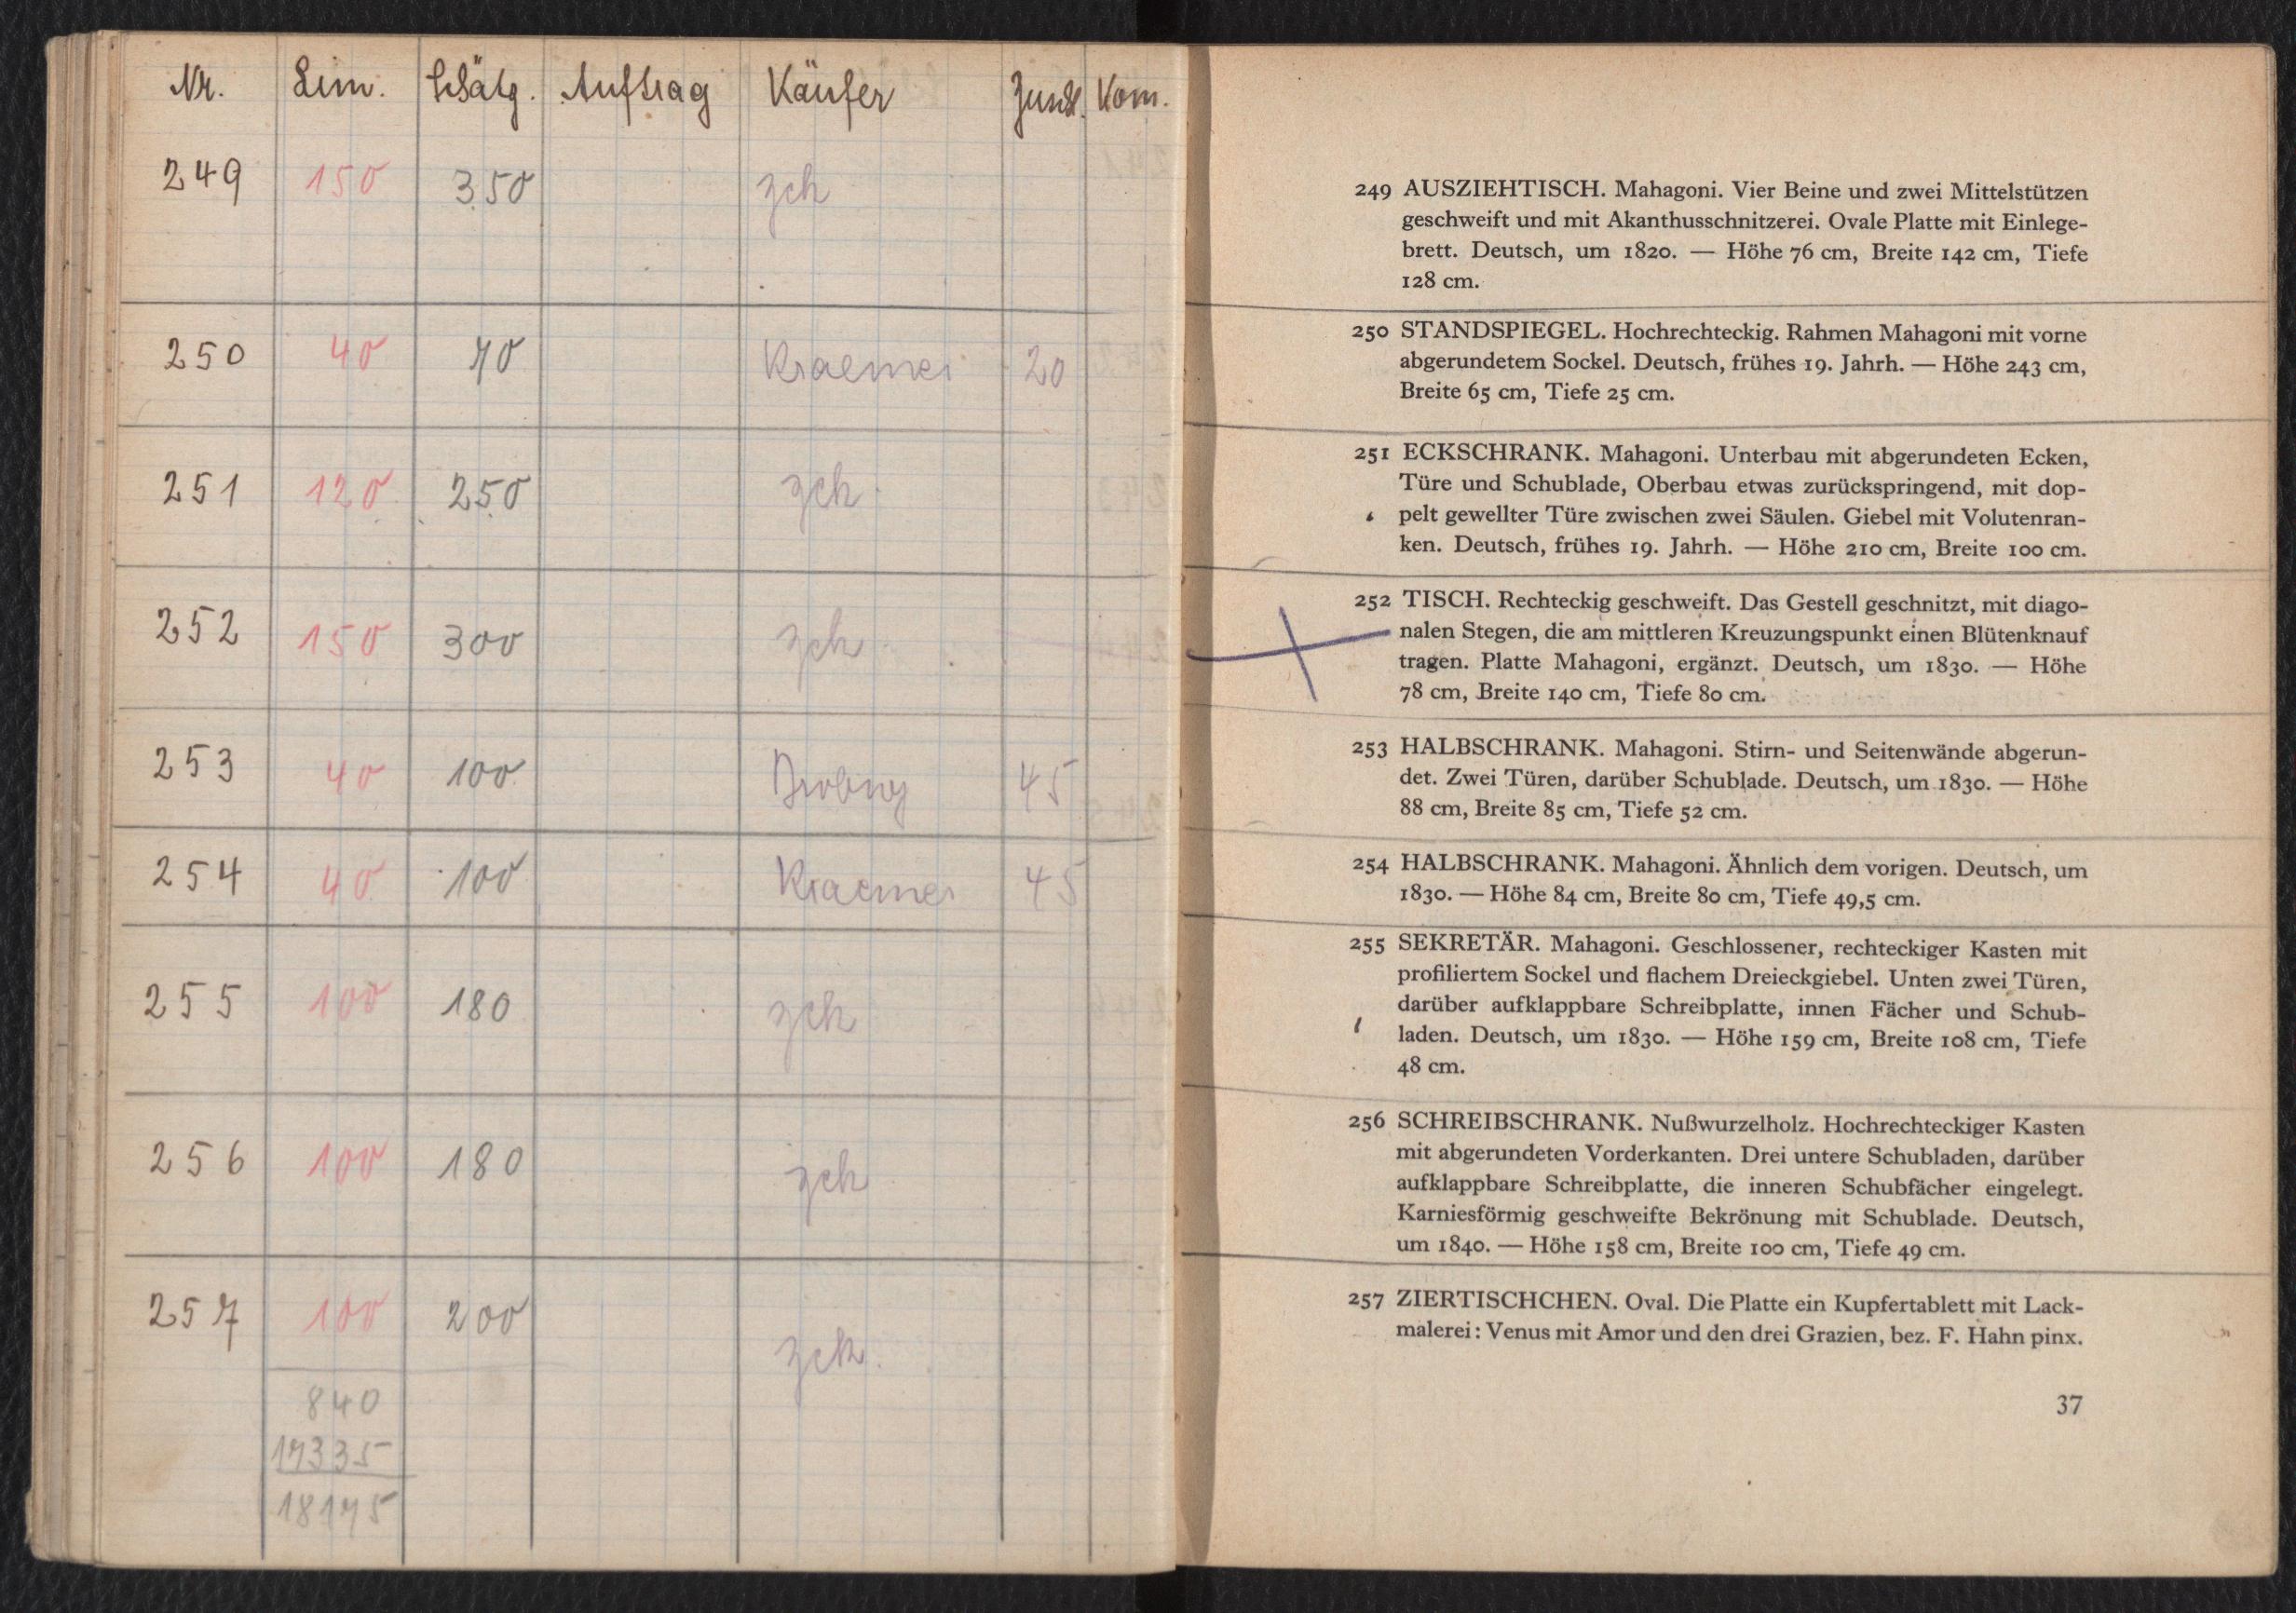 Nr. Lim. Schätzg. Auftrag Käufer Zuschl. Kom.
249 150 350 zch
250 40 70 Kraemer 20
251 120 250 zch
252 150 300 zch
253 40 100 45
254 40 100 Kraemer 45
255 100 180 zch
256 100 180 zch
257 100 200 zch.
840
17335
18175
249 AUSZIEHTISCH. Mahagoni. Vier Beine und zwei Mittelstützen
geschweift und mit Akanthusschnitzerei. Ovale Platte mit Einlege-
brett. Deutsch, um 1820. — Höhe 76 cm, Breite 142 cm, Tiefe
128 cm.
250 STANDSPIEGEL. Hochrechteckig. Rahmen Mahagoni mit vorne
abgerundetem Sockel. Deutsch, frühes 19. Jahrh. — Höhe 243 cm,
Breite 65 cm, Tiefe 25 cm.
251 ECKSCHRANK. Mahagoni. Unterbau mit abgerundeten Ecken,
Türe und Schublade, Oberbau etwas zurückspringend, mit dop-
pelt gewellter Türe zwischen zwei Säulen. Giebel mit Volutenran-
ken. Deutsch, frühes 19. Jahrh. — Höhe 210 cm, Breite 100 cm.
252 TISCH. Rechteckig geschweift. Das Gestell geschnitzt, mit diago-
nalen Stegen, die am mittleren Kreuzungspunkt einen Blütenknauf
tragen. Platte Mahagoni, ergänzt. Deutsch, um 1830. — Höhe
78 cm, Breite 140 cm, Tiefe 80 cm.
253 HALBSCHRANK. Mahagoni. Stirn- und Seitenwände abgerun-
det. Zwei Türen, darüber Schublade. Deutsch, um 1830. — Höhe
88 cm, Breite 85 cm, Tiefe 52 cm.
254 HALBSCHRANK. Mahagoni. Ähnlich dem vorigen. Deutsch, um
1830. — Höhe 84 cm, Breite 80 cm, Tiefe 49,5 cm.
255 SEKRETÄR. Mahagoni. Geschlossener, rechteckiger Kasten mit
profiliertem Sockel und flachem Dreieckgiebel. Unten zwei Türen,
darüber aufklappbare Schreibplatte, innen Fächer und Schub-
laden. Deutsch, um 1830. — Höhe 159 cm, Breite 108 cm, Tiefe
48 cm.
256 SCHREIBSCHRANK. Nußwurzelholz. Hochrechteckiger Kasten
mit abgerundeten Vorderkanten. Drei untere Schubladen, darüber
aufklappbare Schreibplatte, die inneren Schubfächer eingelegt.
Karniesförmig geschweifte Bekrönung mit Schublade. Deutsch,
um 1840. — Höhe 158 cm, Breite 100 cm, Tiefe 49 cm.
257 ZIERTISCHCHEN. Oval. Die Platte ein Kupfertablett mit Lack-
malerei: Venus mit Amor und den drei Grazien, bez. F. Hahn pinx.
37